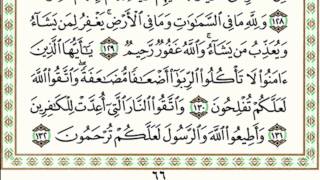 ١٢٨ وَلِلَّهِ مَا فِي السَّمَٰوَٰتِ وَمَا فِي الْأَرْضِ يَغْفِرُ لِمَن يَشَآءُ
وَيُعَذِّبُ مَن يَشَآءُ وَاللَّهُ غَفُورٌ رَّحِيمٌ ١٢٩ يَٰٓأَيُّهَا الَّذِينَ
ءَامَنُوا۟ لَا تَأْكُلُوا۟ الرِّبَوٰٓا۟ أَضْعَٰفًا مُّضَٰعَفَةً وَاتَّقُوا۟ اللَّهَ
لَعَلَّكُمْ تُفْلِحُونَ ١٣٠ وَاتَّقُوا۟ النَّارَ الَّتِىٓ أُعِدَّتْ لِلْكَٰفِرِينَ
١٣١ وَأَطِيعُوا۟ اللَّهَ وَالرَّسُولَ لَعَلَّكُمْ تُرْحَمُونَ ١٣٢
٦٦